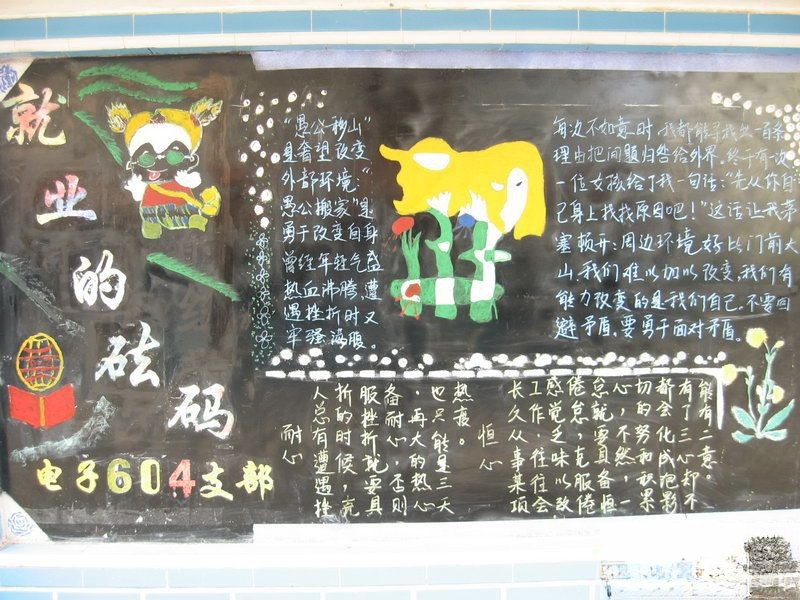 就业的砝码
电子604支部
"愚公移山"
是奢望改变
外部环境."
愚公搬家"是
勇于改变自身
曾经年轻气盛
热血沸腾,遭
遇挫折时又
牢骚满腹。
每次不如意时,我都能寻找出一百条
理由把问题归咎给外界.终于有一次
一位女孩给了我一句话:"先从你自
己身上找找原因吧!"这话让我茅
塞顿开:周边环境好比门前大
山.我们难以加以改变,我们有
能力改变的是我们自己.不要回
避矛盾,要勇于面对矛盾。
耐心
人总有遭遇挫
折的时候,克
服挫折就要具
备耐心,否则
,再大的热心
也只能是三天
热度。
恒心
长久从事某项
工作,往往会
感觉乏味以致
倦怠,克服倦
怠就要具备恒
心,不然,一
切的努和
都会化成泡影
有了三心却不
能有二意。